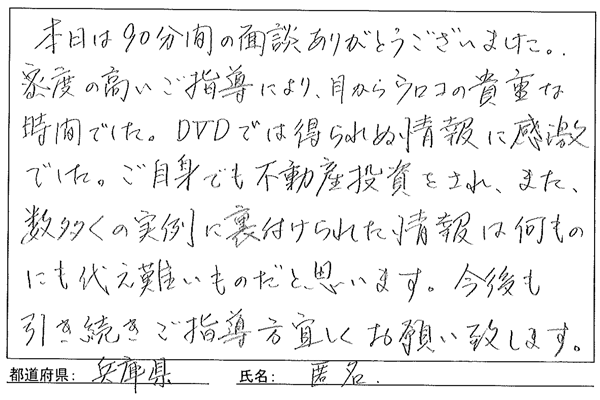 本日は90分間の面談ありがとうございました。
密度の高いご指導により、目からウロコの貴重な
時間でした。DVDでは得られぬ情報に感激
でした。ご自身でも不動産投資をされ、また、
数多くの実例に裏付けられた情報は何もの
にも代え難いものだと思います。今後も
引き続きご指導方宜しくお願い致します。
都道府県: 兵庫県 氏名: 匿名.